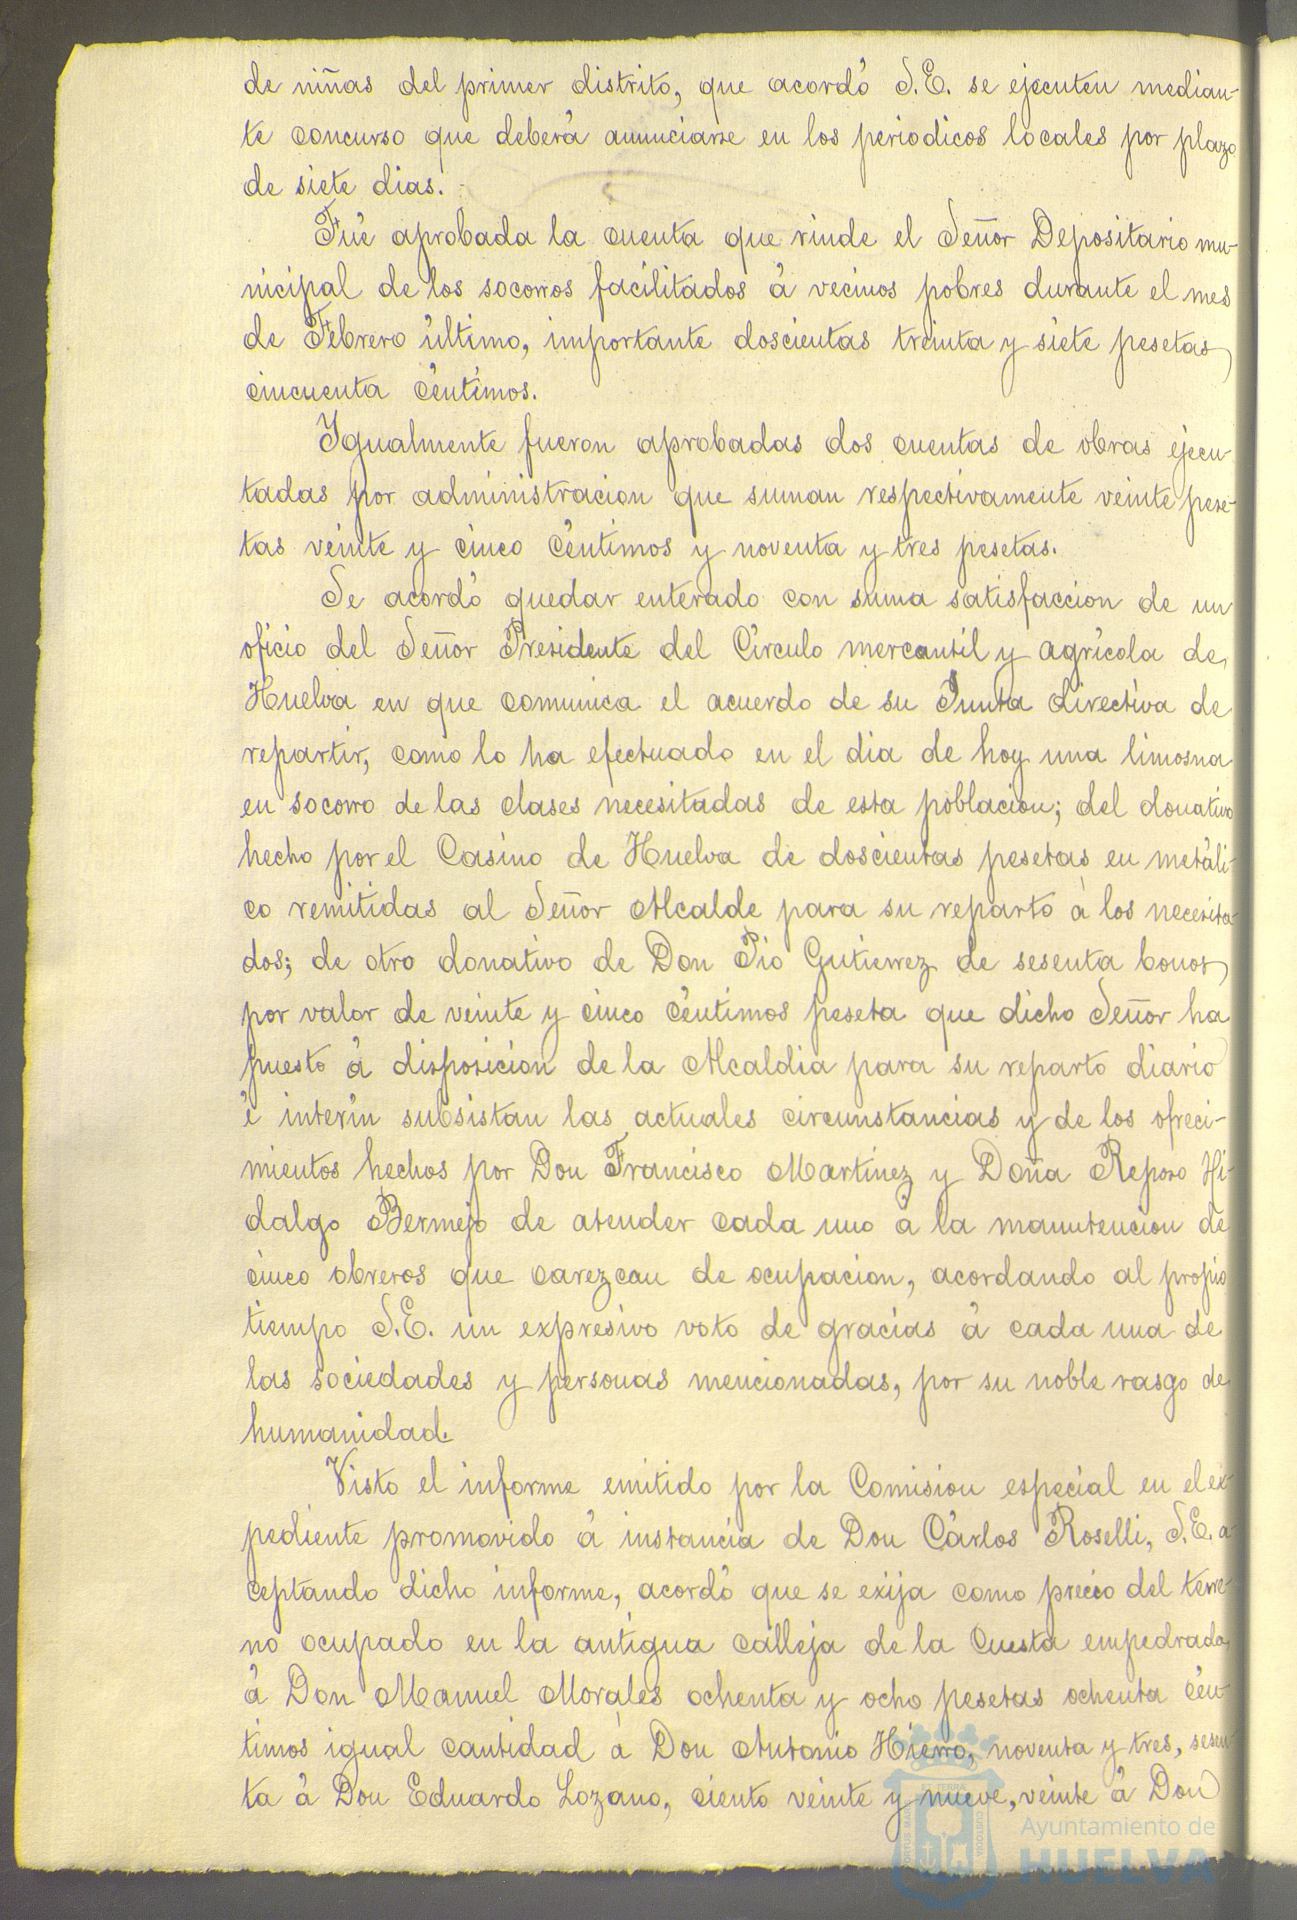 de niñas del primer distrito, que acordó S.E. se ejecuten median-
te concurso que deberá anunciarse en los periodicos locales por plazo
de siete dias.
Fué aprobada la cuenta que rinde el Señor Depositario mu-
nicipal de los socorros facilitados á vecinos pobres durante el mes
de Febrero último, importante doscientas treinta y siete pesetas,
cincuenta céntimos.
Igualmente fueron aprobadas dos cuentas de obras ejecu-
tadas por administracion que suman respectivamente veinte pese-
tas veinte y cinco céntimos y noventa y tres pesetas.
Se acordó quedar enterado con suma satisfaccion de un
oficio del Señor Presidente del Circulo mercantil y agrícola de
Huelva en que comunica el acuerdo de su Junta directiva de
repartir, como lo ha efectuado en el dia de hoy una limosna
en socorro de las clases necesitadas de esta poblacion; del donativo
hecho por el Casino de Huelva de doscientas pesetas en metáli-
co remitidas al Señor Alcalde para su reparto á los necesita-
dos; de otro donativo de Don Pio Gutierrez de sesenta bonos,
por valor de veinte y cinco céntimos peseta que dicho Señor ha
puesto á disposicion de la Alcaldia para su reparto diario
é interín subsistan las actuales circunstancias y de los ofreci-
mientos hechos por Don Francisco Martínez y Doña Reposo Hi-
dalgo Bermejo de atender cada uno á la manutencion de
cinco obreros que carezcan de ocupacion, acordando al propio
tiempo S.E. un expresivo voto de gracias á cada una de
las sociedades y personas mencionadas, por su noble rasgo de
humanidad.
Visto el informe emitido por la Comision especial en el ex-
pediente promovido á instancia de Don Cárlos Roselli, S.E. a-
ceptando dicho informe, acordó que se exija como precio del terre-
no ocupado en la antigua calleja de la Cuesta empedrada,
á Don Manuel Morales ochenta y ocho pesetas ochenta cén-
timos igual cantidad á Don Antonio Hierro, noventa y tres, sesen-
ta á Don Eduardo Lozano, ciento veinte y nueve, veinte á Don
Ayuntamiento de
HUELVA